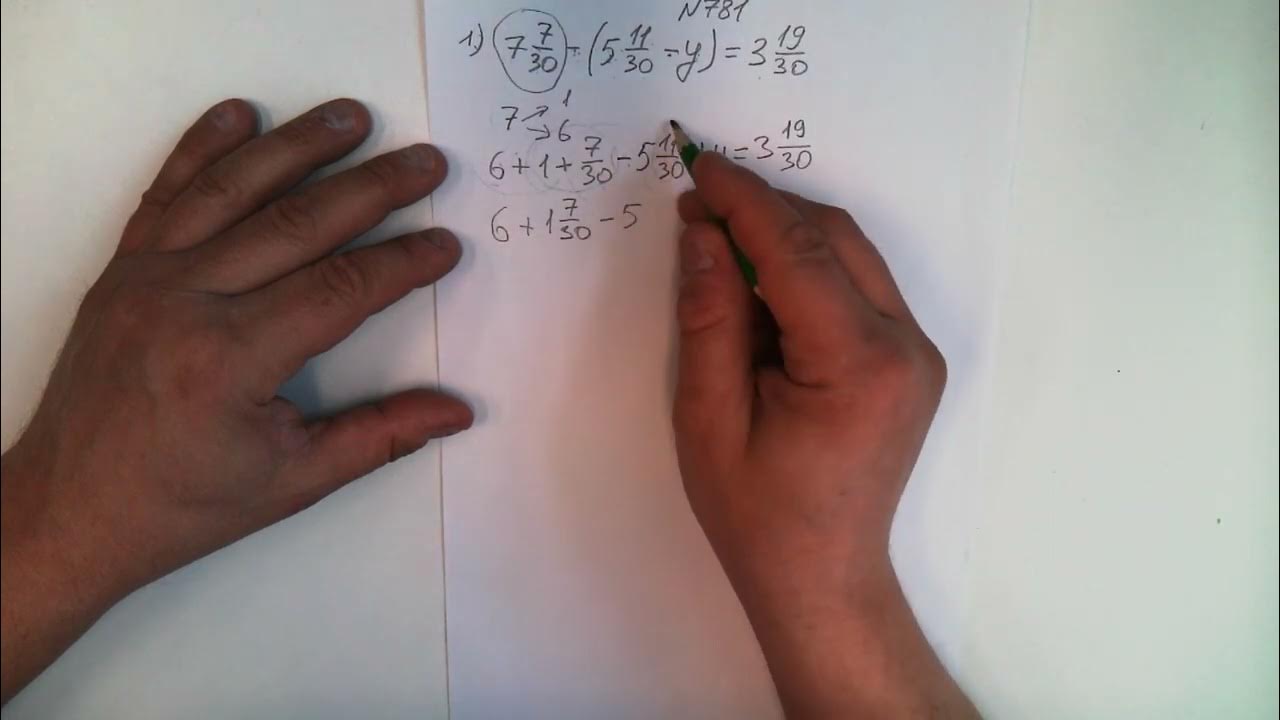 N781
1) 7 7/30 - (5 11/30 - y) = 3 19/30
7 → 1
→ 6
6 + 1 + 7/30 - 5 11/30 + y = 3 19/30
6 + 1 7/30 - 5